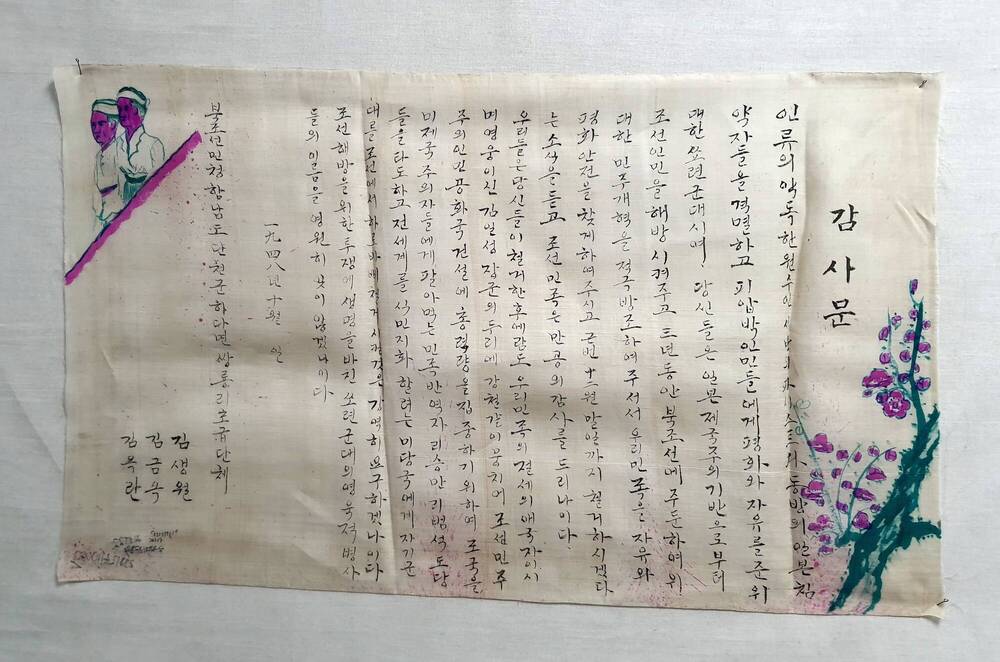 감사문
인류의 악독한 원수인 동방의 일본침
약자들을 격멸하고 피압박인민들에게 평화와 자유를 준 위
대한 쏘련군대시여! 당신들은 일본제국주의 기반으로부터
조선인민을 해방시켜주고 三년동안 북조선에 주둔하여 위
대한 민주개혁을 적극 방조하여 주셔서 우리민족을 자유와
평화 안전을 찾게하여주시고 근번 十二월말일까지 철거하시겠다
는 소식을 듣고 조선민족은 만공의 감사를 드리나이다.
우리들은 당신들이 철거한 후에란도 우리민족의 절세의 애국자이시
며 영웅이신 김일성 장군의 두리에 강철같이 뭉치어 조선민주
주의인민공화국 건설에 총력량을 집중하기 위하여 조국을
미제국주의자들에게 팔아먹는 민족반역자 리승만 리범석도당
들을 타도하고 전세계를 식민지화 할련는 미당국에게 자기군
대를 조선에서 하로바삐 철거시킬것을 강력히 요구하겟나이다
조선해방을 위한 투쟁에 생명을 바진 쏘련군대의 영웅적 병사
들의 이름을 영원히 잊이 않겟나이다
一九四八년 十월 일
북조선민청함남도단천군하다면쌍룡리초급단체
김생월
김금옥
김옥란